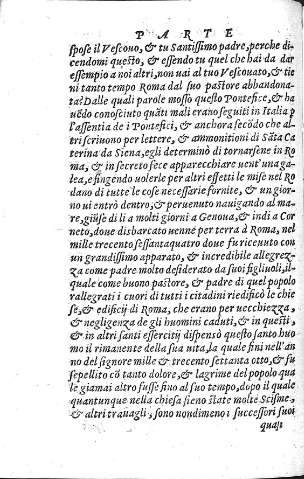 PARTE
spose il Vescouo, & tu Santissimo padre, perche di
cendomi questo, & essendo tu quel che hai da dar
essempio a noi altri, non uai al tuo Vescouato, & tie
ni tanto tempo Roma dal suo pastore abbandona-
ta? Dalle quali parole mosso questo Pontefice, & ha
uẽdo conosciuto quãti mali erano seguiti in Italia p
l'assentia de i Pontefici, & anchora secõdo che al-
tri scriuono per lettere, & ammonitioni di Sãta Ca
terina da Siena, egli determinò di tornarsene in Ro
ma, & in secreto fece apparecchiare uent'una ga-
lea, e fingendo uolerle per altri effetti le mise nel Ro
dano di tutte le cose necessarie fornite, & un gior-
no ui entrò dentro, & peruenuto nauigando al ma-
re, giũse di li a molti giorni a Genoua, & indi a Cor
neto, doue disbarcato uenne per terra à Roma, nel
mille trecento sessantaquatro doue fu riceuuto con
un grandissimo apparato, & incredibile allegrez-
za come padre molto desiderato da suoi figliuoli, il
quale come buono pastore, & padre di quel popolo
rallegrati i cuori di tutti i citadini riedificò le chie
se, & edificij di Roma, che erano per uecchiezza,
& negligenza de gli huomini caduti, & in questi,
& in altri santi essercitij dispensò questo santo huo
mo il rimanente della sua uita, la quale fini nell'an
no del signore mille & trecento settanta otto, & fu
sepellito cõ tanto dolore, & lagrime del popolo qua
le giamai altro fusse fino al suo tempo, dopo il quale
quantunque nella chiesa sieno state molte Scisme,
& altri trauagli, sono nondimeno i successori suoi
quasi